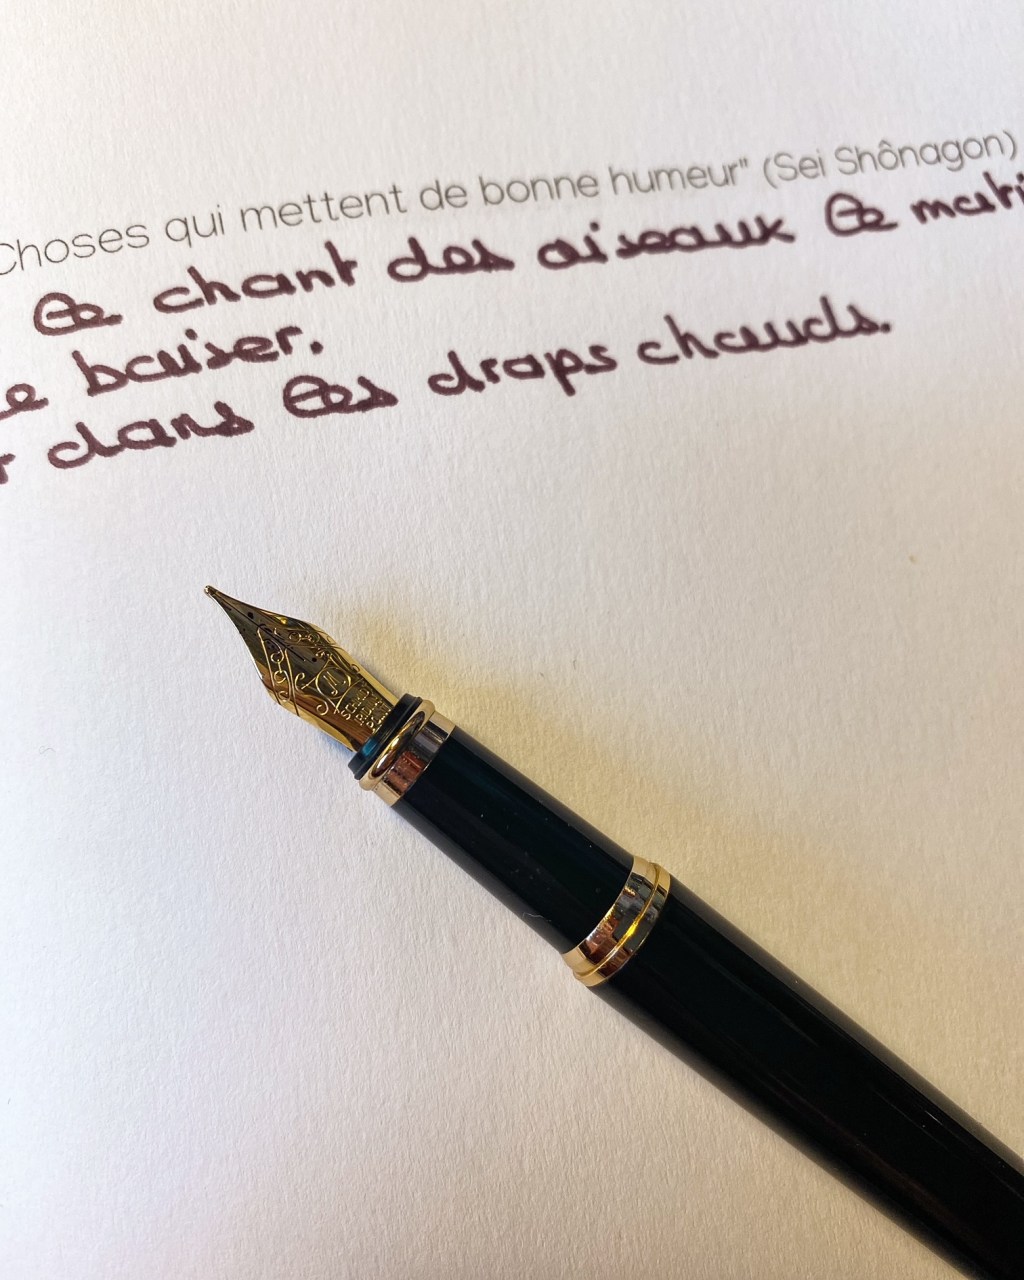 Choses qui mettent de bonne humeur" (Sei Shônagon)
Le chant des oiseaux le mati
baiser.
dans les draps chauds.